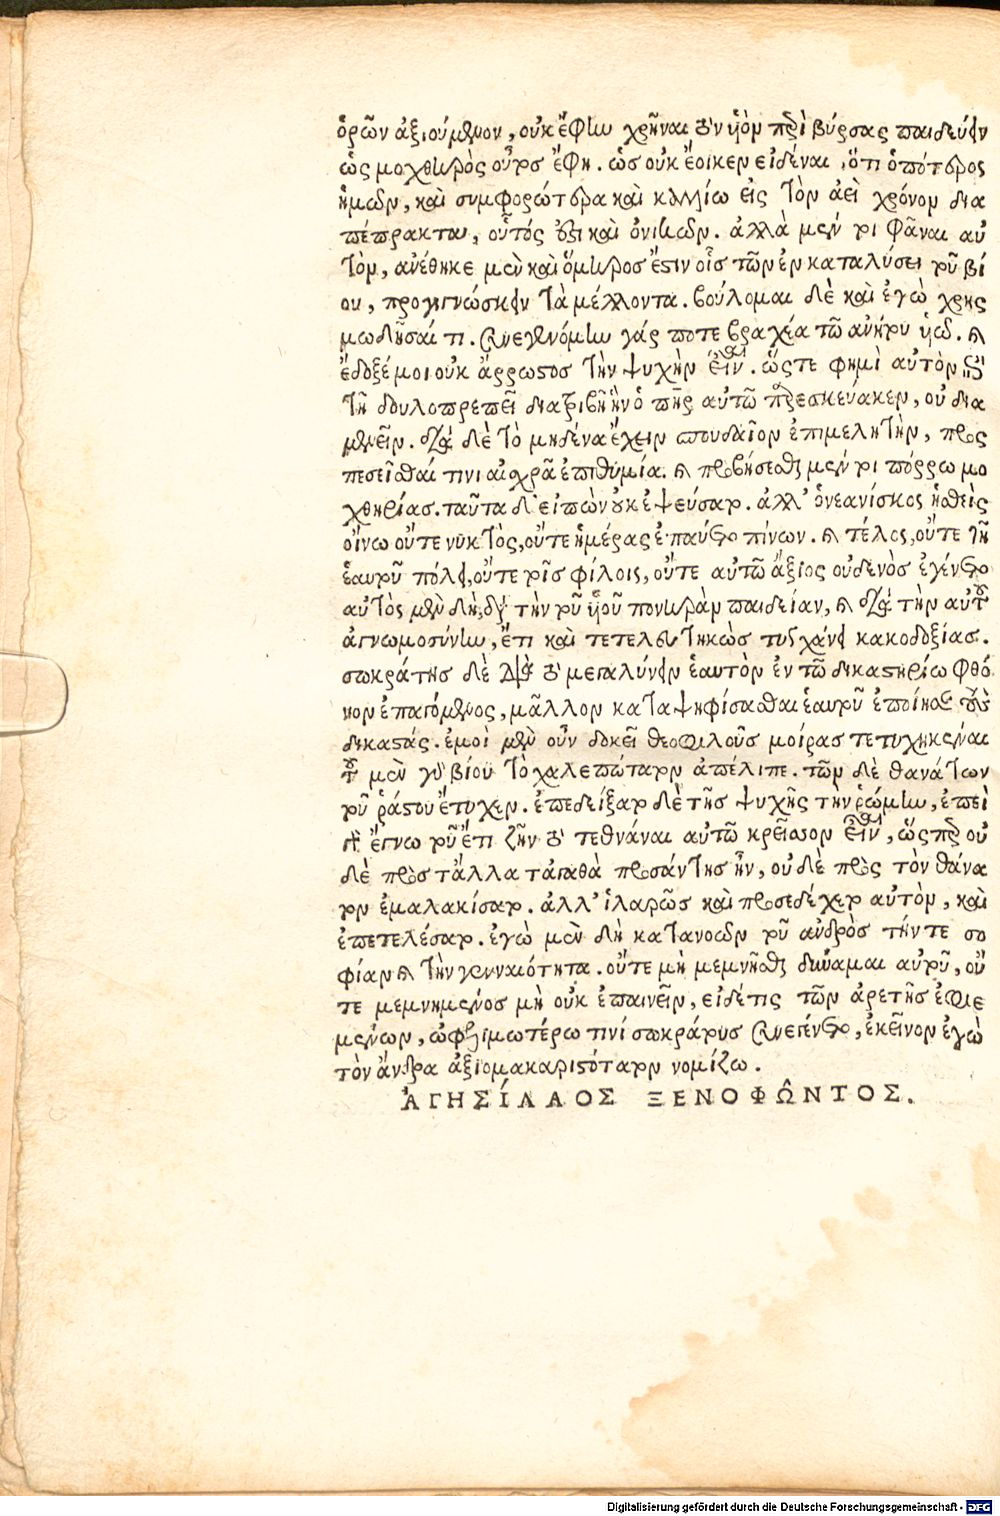 ὁρῶν ἀξιούμενον, οὐκ ἔφην χρῆναι τὸν υἱὸν περὶ βύρσας παιδεύειν
ὡς μοχθηρὸς οὗτος ἔφη. ὡς οὐκ ἔοικεν εἰδέναι, ὅτι ὁπότερος
ἡμῶν, καὶ συμφορώτερα καὶ καλλίω εἰς τὸν ἀεὶ χρόνον δια
πέπρακται, οὗτός ἐστι καὶ ὁ νικῶν. ἀλλὰ μέν τοι φᾶναι αὐ
τὸν, ἀνέθηκε μὲν καὶ ὅμηρος ἔστιν οἷς τῶν ἐν καταλύσει τοῦ βί
ου, προγιγνώσκειν τὰ μέλλοντα. βούλομαι δὲ καὶ ἐγὼ χρησ
μωδῆσαί τι. συνεγενόμην γάρ ποτε βραχέα τῶ ἀνύτου υἱῶ. καὶ
ἔδοξέ μοι οὐκ ἄρρωστος τὴν ψυχὴν εἶναι. ὥστε φημὶ αὐτὸν ἐπὶ
τῆ δουλοπρεπεῖ διατριβῆ ἣν ὁ πατὴρ αὐτῶ παρεσκεύακεν, οὐ δια
μενεῖν. διὰ δὲ τὸ μηδένα ἔχειν σπουδαῖον ἐπιμελητὴν, προσ
πεσεῖσθαί τινι αἰσχρᾶ ἐπιθυμία. καὶ προβήσεσθαι μέν τοι πόρρω μο
χθηρίας. ταῦτα δ' εἰπὼν οὐκ ἐψεύσατο. ἀλλ' ὁ νεανίσκος ἡσθεὶς
οἴνω οὔτε νυκτὸς, οὔτε ἡμέρας ἐπαύετο πίνων. καὶ τέλος, οὔτε τῆ
ἑαυτοῦ πόλει, οὔτε τοῖς φίλοις, οὔτε αὐτῶ ἄξιος οὐδενὸς ἐγένετο
αὐτὸς μὲν δὴ, διὰ τὴν τοῦ υἱοῦ πονηρὰν παιδείαν, καὶ διὰ τὴν αὐτοῦ
ἀγνωμοσύνην, ἔτι καὶ τετελευτηκὼς τυγχάνει κακοδοξίας.
σωκράτης δὲ διὰ τὸ μεγαλύνειν ἑαυτὸν ἐν τῶ δικαστηρίω φθό
νον ἐπαγόμενος, μᾶλλον καταψηφίσασθαι ἑαυτοῦ ἐποίησε τοὺς
δικαστάς. ἐμοὶ μὲν οὖν δοκεῖ θεοφιλοῦς μοίρας τετυχηκέναι
τοῦ μὲν γὰρ βίου τὸ χαλεπώτατον ἀπέλιπε. τῶν δὲ θανάτων
τοῦ ῥάστου ἔτυχεν. ἐπεδείξατο δὲ τῆς ψυχῆς τὴν ῥώμην, ἐπεὶ
γὰρ ἔγνω τοῦ ἔτι ζῆν τὸ τεθνάναι αὐτῶ κρεῖσσον εἶναι, ὥσπερ οὐ
δὲ πρὸς τἄλλα τἀγαθὰ προσάντης ἦν, οὐδὲ πρὸς τὸν θάνα
τον ἐμαλακίσατο. ἀλλ' ἱλαρῶς καὶ προσεδέχετο αὐτὸν, καὶ
ἐπετελέσατο. ἐγὼ μὲν δὴ κατανοῶν τοῦ ἀνδρὸς τήν τε σο
φίαν καὶ τὴν γενναιότητα. οὔτε μὴ μεμνῆσθαι δύναμαι αὐτοῦ, οὔ
τε μεμνημένος μὴ οὐκ ἐπαινεῖν, εἰ δέ τις τῶν ἀρετῆς ἐφιε
μένων, ὠφελιμωτέρω τινί σωκράτους συνεγένετο, ἐκεῖνον ἐγὼ
τὸν ἄνδρα ἀξιομακαριστότατον νομίζω.
ἈΓΗΣΊΛΑΟΣ ΞΕΝΟΦῶΝΤΟΣ.
Digitalisierung gefördert durch die Deutsche Forschungsgemeinschaft - DFG